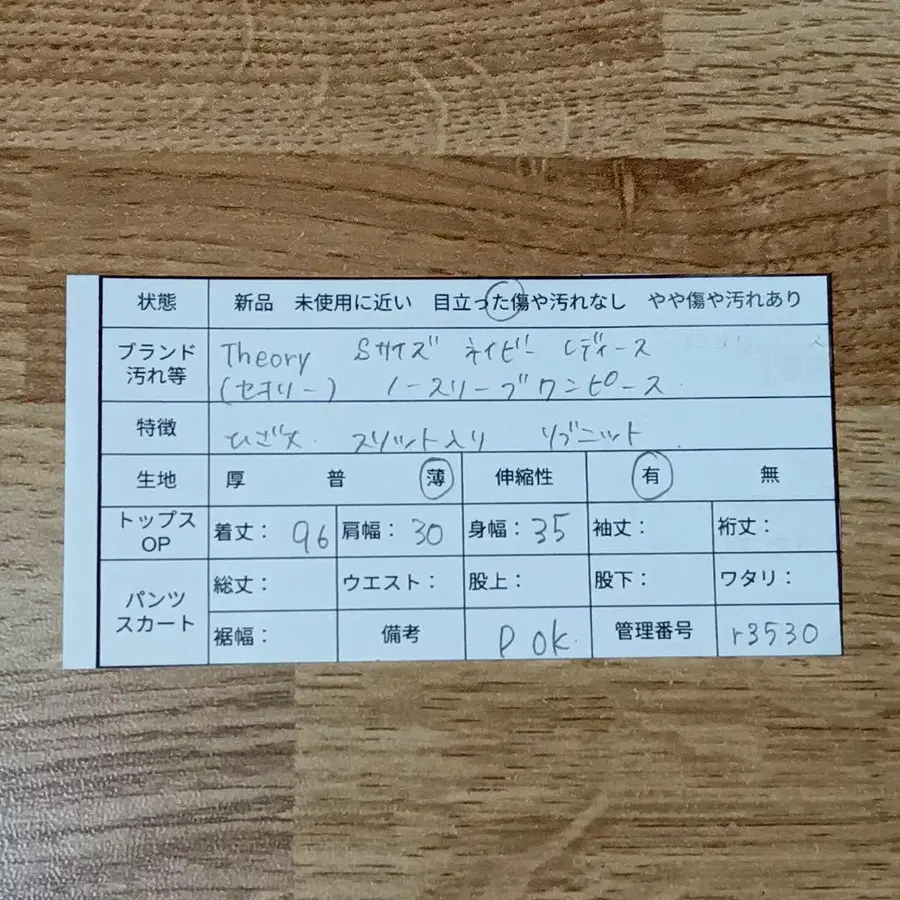 状態 新品 未使用に近い 目立った傷や汚れなし やや傷や汚れあり
ブランド 汚れ等 Theory Sサイズ ネイビー レディース
(セオリー) ノースリーブワンピース.
特徴 ひざ丈. スリット入り リブニット.
生地 厚 普 薄 伸縮性 有 無
トップス OP 着丈: 96 肩幅: 30 身幅: 35 袖丈: 裄丈:
パンツ スカート 総丈: ウエスト: 股上: 股下: ワタリ:
裾幅: 備考 P OK. 管理番号 r3530